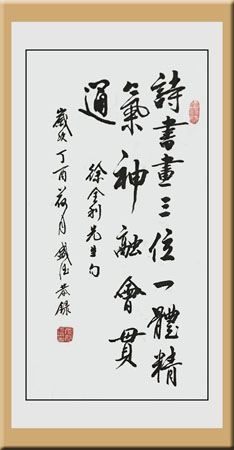 詩書畫三位一體精
氣神融會貫
通
徐金利先生句
歲次丁酉荷月 盛法恭錄